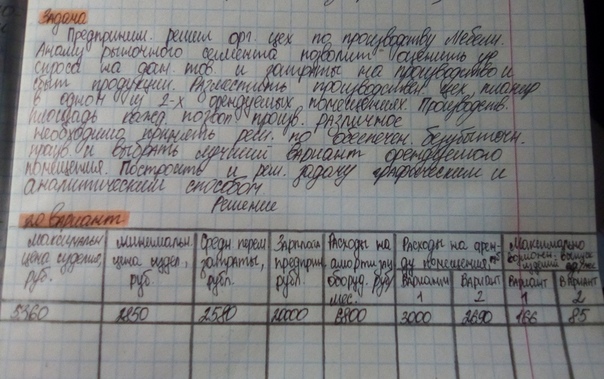 Задача
Предприним. решил орг. цех по производству мебели.
Анализ рыночного сегмента позволит оценить ур.
спроса на дан. тов. и затраты на производство и
сбыт продукции. Разместить производствен. цех планир
в одном из 2-х арендуемых помещениях. Производств.
площадь кажд. позвол произв. различное
необходимо принять реш. по обеспечен. безубыточн.
произв. и выбрать лучший вариант арендуемого
помещения. Построить и реш. задачу графическим и
аналитическим способом
Решение
вариант
Максимальн цена изделия, руб.
минимальн. цена издел., руб.
Средн перем затраты, рубл.
Зарплат предприн. рубл.
Расходы на амортиз оборуд. руб/мес.
Расходы на аренду помещения,
Вариант 1
Вариант 2
Максимально возможн. выпуск изделий
Вариант 1
Вариант 2
5360 2850 2580 20000 6800 3000 2690 166 85